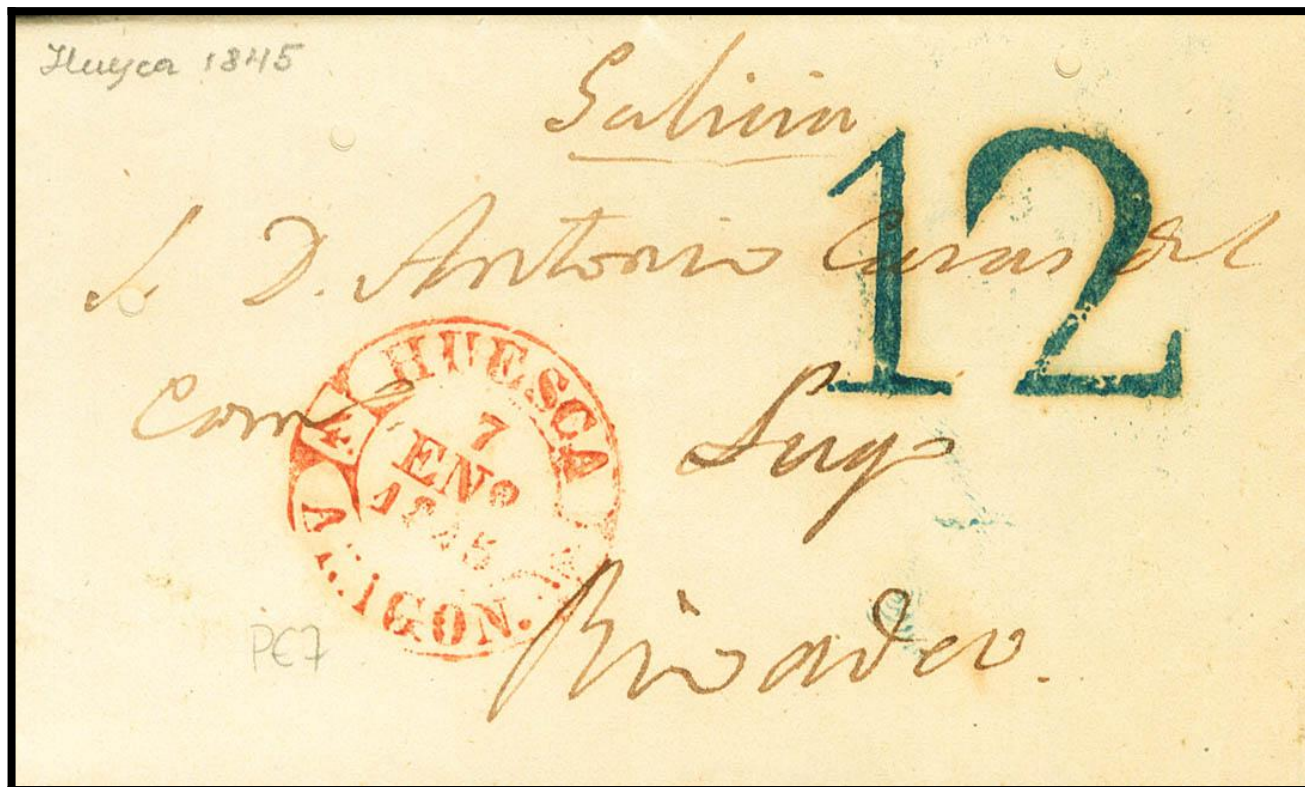 Huesca 1845
Galicia
12
S. D. Antonio Casas del
Com
Lugo
HUESCA
7
ENº
1845
ARAGON.
Rivadeo.
PE7